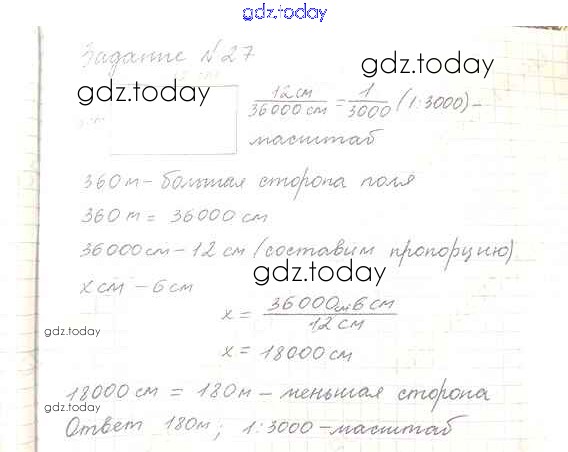 gdz.today
Задание №27
gdz.today
gdz.today
12 см / 36000 см = 1 / 3000 (1:3000) –
масштаб
360 м – большая сторона поля
360 м = 36000 см
36000 см – 12 см (составим пропорцию)
gdz.today
x см – 6 см
x = 36000 см 6 см / 12 см
gdz.today
x = 18000 см
18000 см = 180 м – меньшая сторона
gdz.today
Ответ 180 м; 1:3000 – масштаб